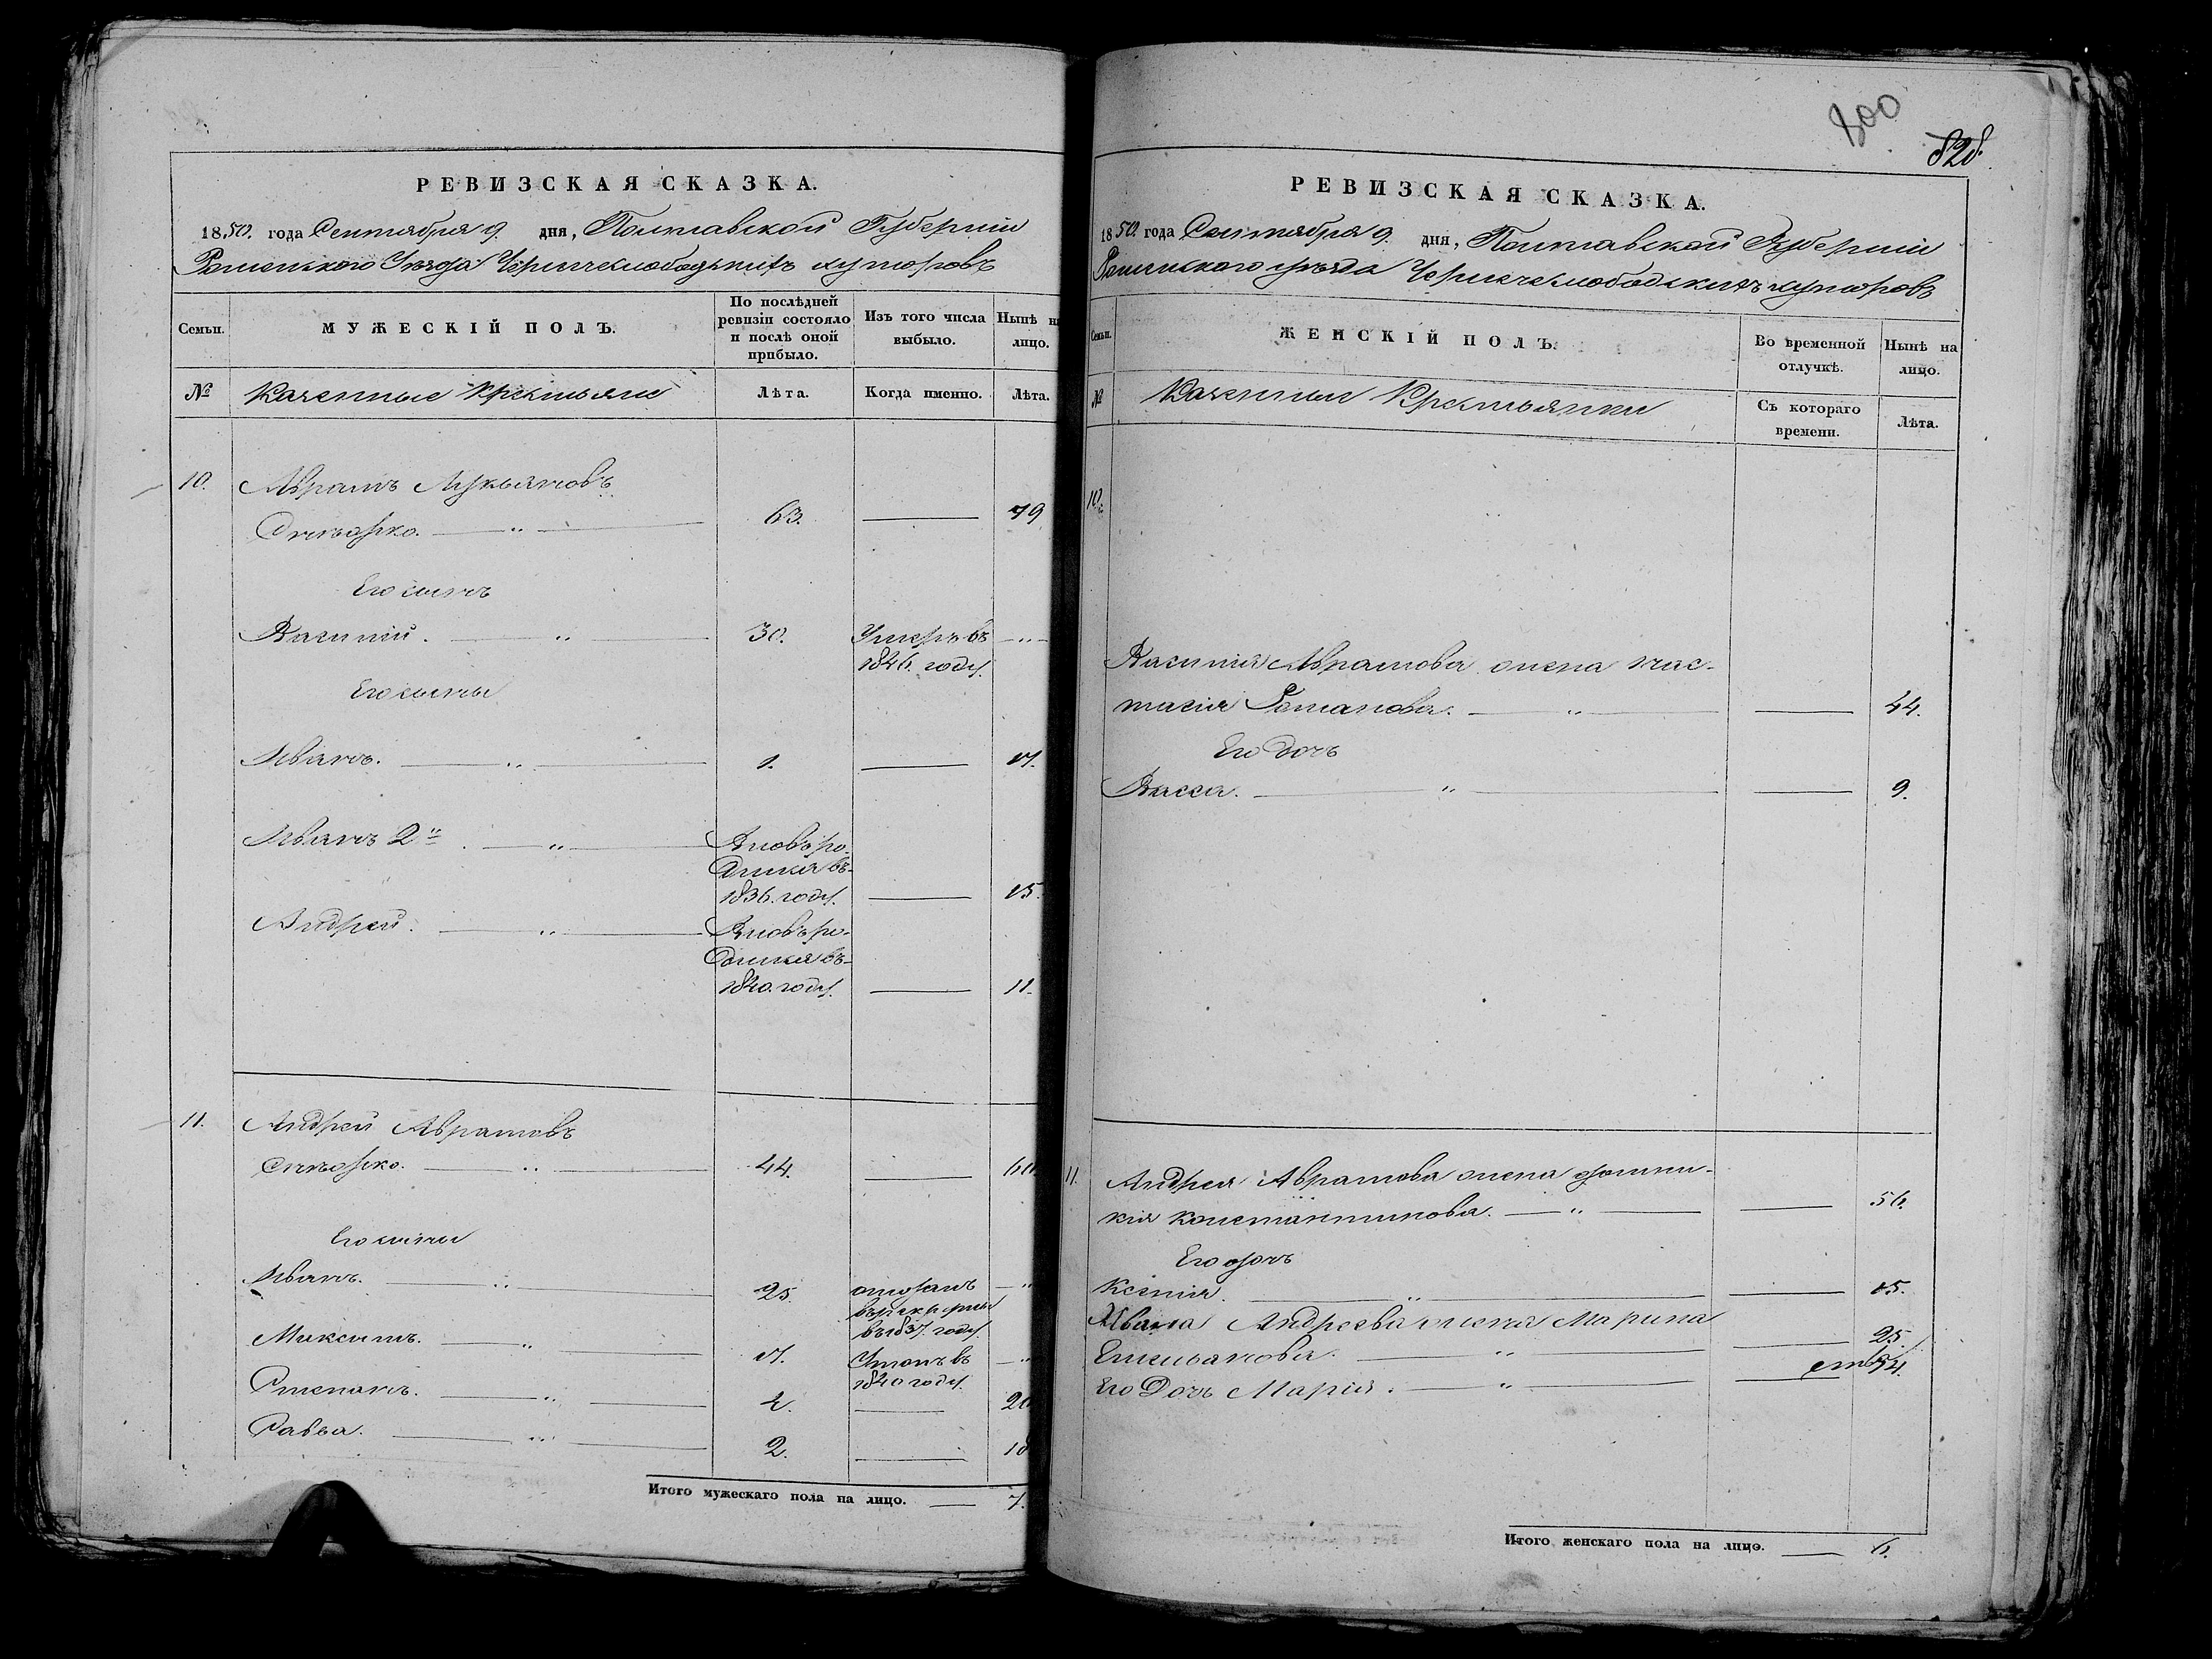 РЕВИЗСКАЯ СКАЗКА.
1850. года Сентября 9. дня, Полтавской Губернии
Роменского Уезда Чернечеслободскихъ хуторовъ
Семьи.
МУЖЕСКІЙ ПОЛЪ.
По послѣдней ревизіи состояло и послѣ оной прибыло.
Изъ того числа выбыло.
Нынѣ на лицо.
№
Казенные Крестьяне
Лѣта.
Когда именно.
Лѣта.
10. Аврамъ Лукьяновъ
63. 79
Его сынъ
Василий. 30. Умеръ въ
1846. году.
Его сыны
Иванъ. 1. 17.
Иванъ 2й Вновь ро-
дился въ
1836. году. 15.
Андрей. Вновь ро-
дился въ
1840. году. 11.
11. Андрей Аврамовъ
44. 60
Его сыны
Иванъ. 25. отданъ
въ рекруты
въ 1837. году.
Максимъ. 17. въ
1840 году.
Степанъ. 4. 20
Савва. 2. 18
Итого мужескаго пола на лицо. 7.
800
828.
РЕВИЗСКАЯ СКАЗКА.
1850. года Сентября 9. дня, Полтавской Губернии
Роменского уезда Чернечеслободскихъ хуторовъ
Семьи.
ЖЕНСКІЙ ПОЛЪ.
Во временной отлучкѣ.
Нынѣ на лицо.
№
Казенныи Крестьянки
Съ котораго времени.
Лѣта.
10.
Василия Аврамова жена Нас-
тасия Романова. 44.
Его дочь
Васса. 9.
11. Андрея Аврамова жена
Константинова. 56.
Его дочь
Ксения. 15.
Ивана Андреева жена Марина
Емельянова. 25
Его Дочь Мария. 14.
Итого женскаго пола на лицо. 6.